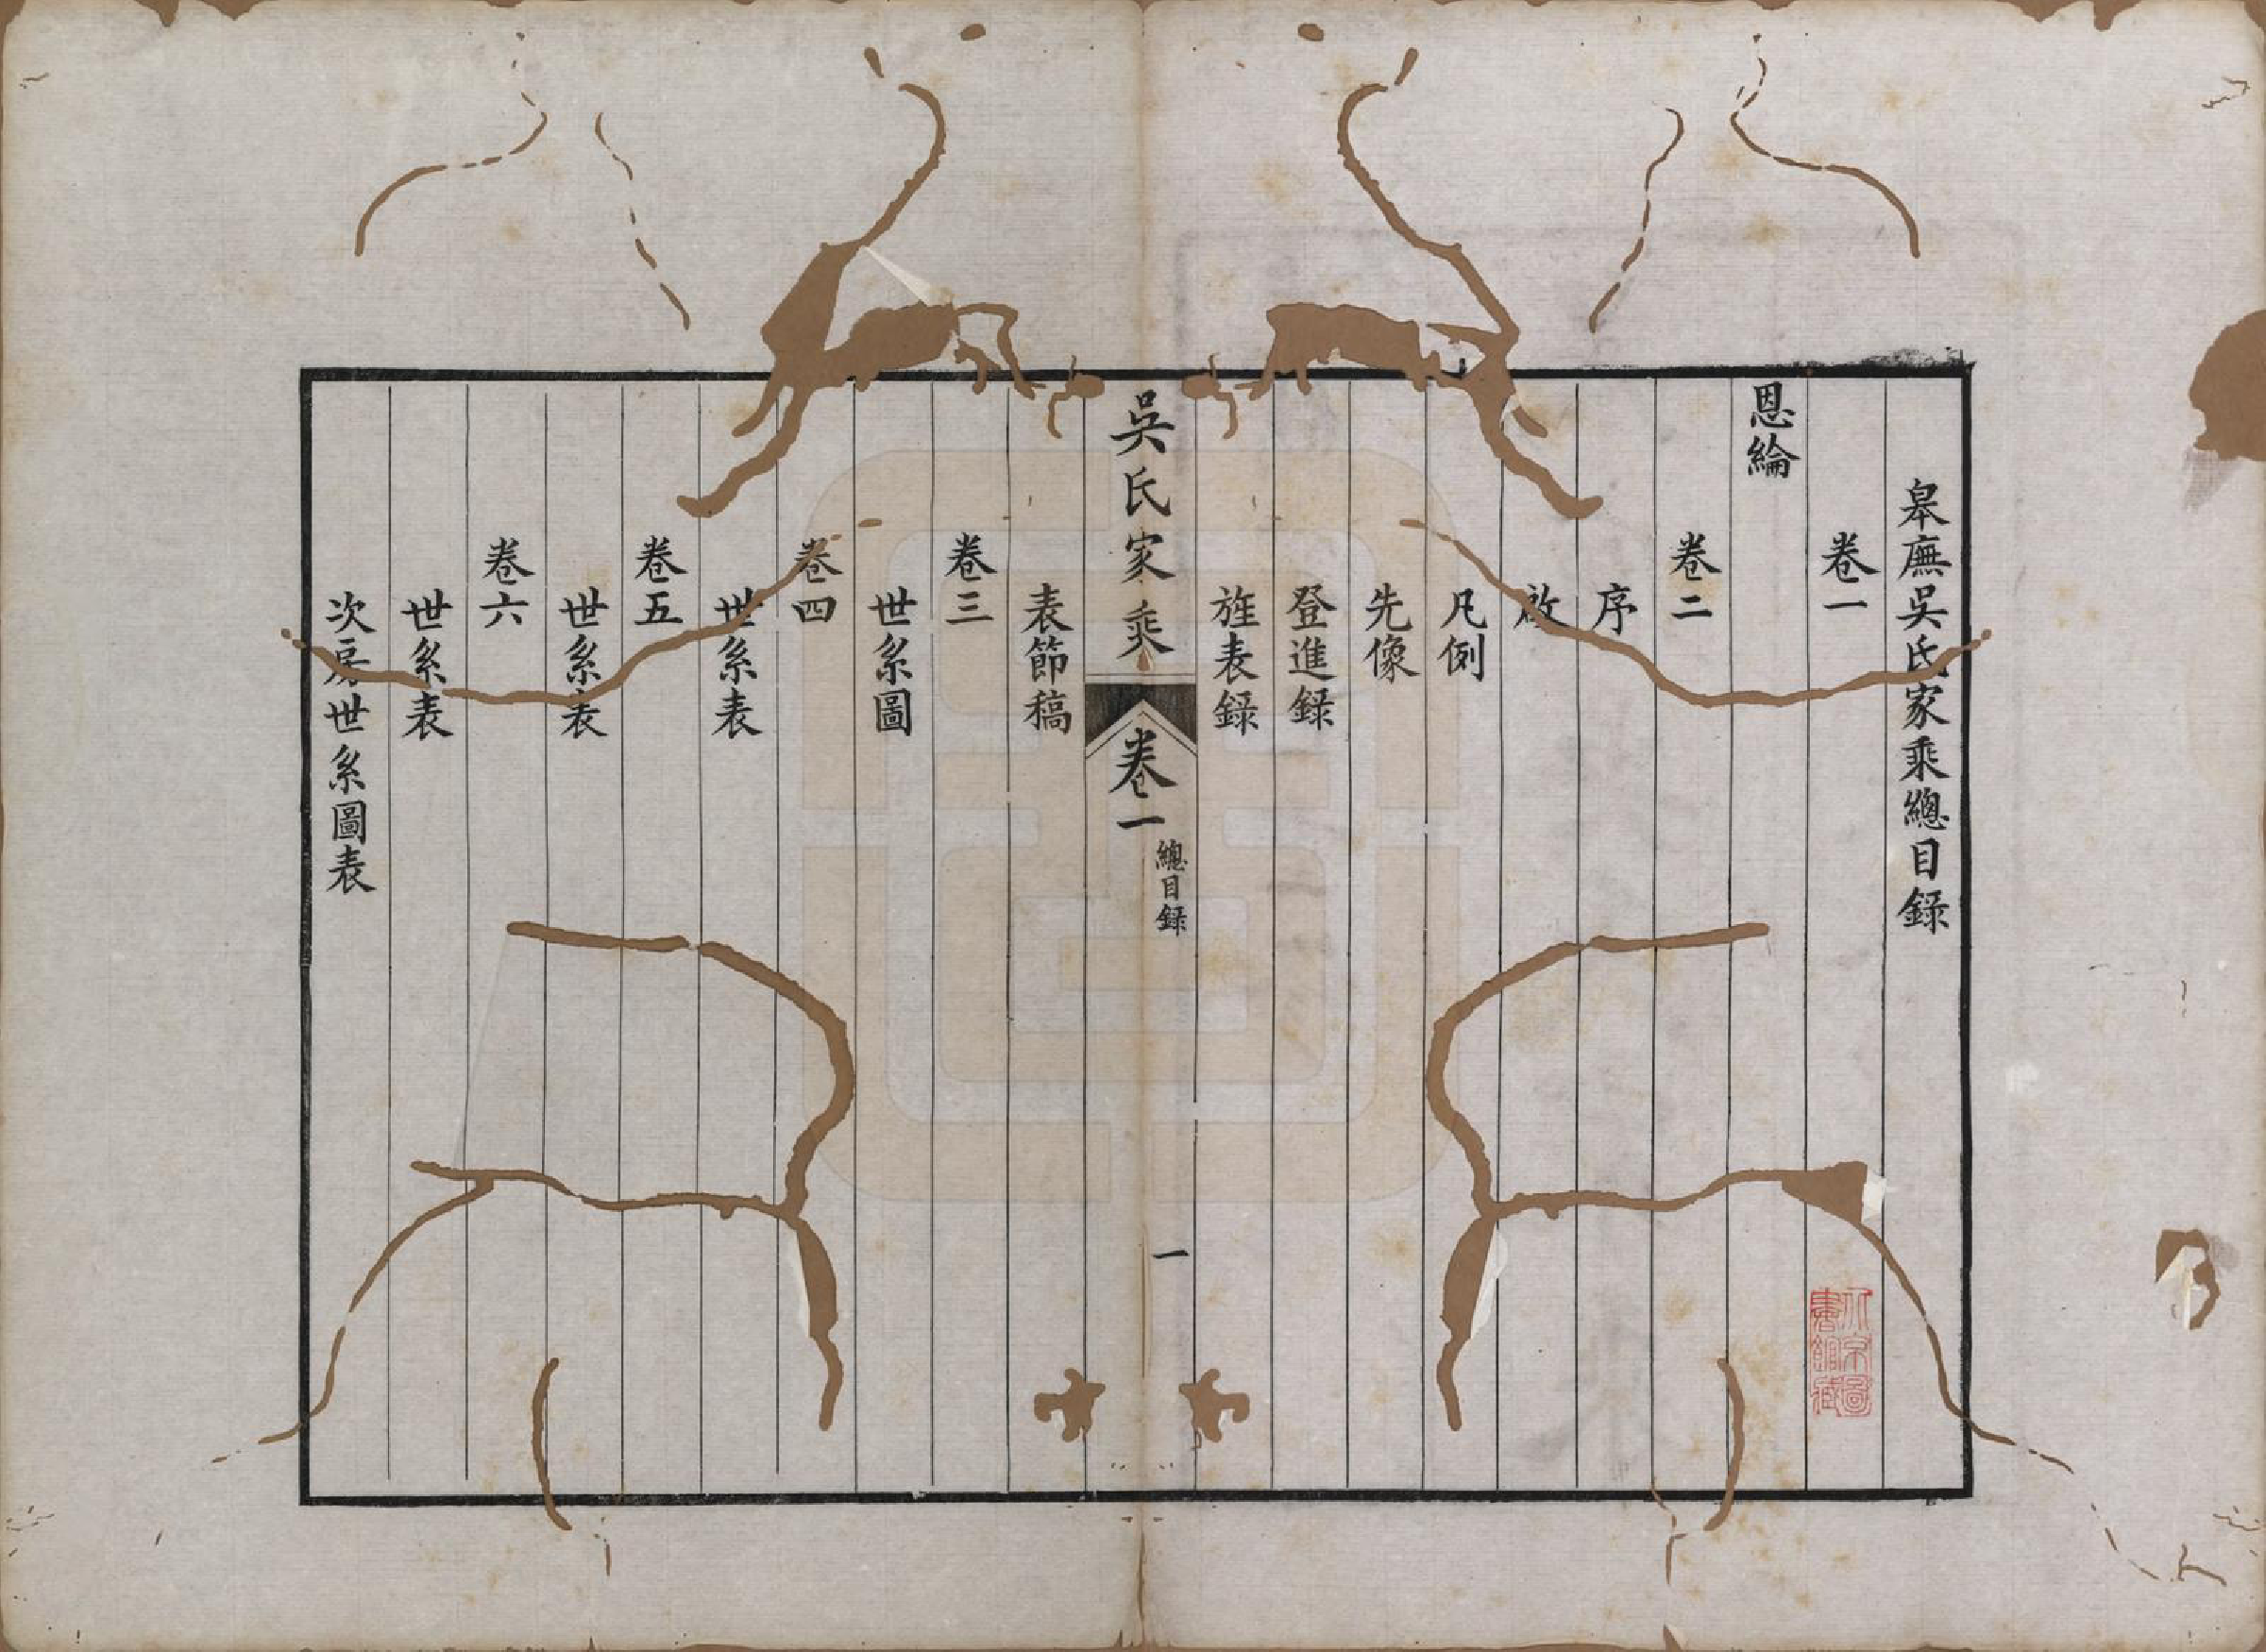 皋廡吳氏家乘總目錄
卷一
恩綸
卷二
序
啟
凡例
先像
登進錄
旌表錄
吳氏家乘
卷一
總目錄
一
表節稿
卷三
世系圖
卷四
世系表
卷五
世系表
卷六
世系表
次房世系圖表
北京圖
書館藏